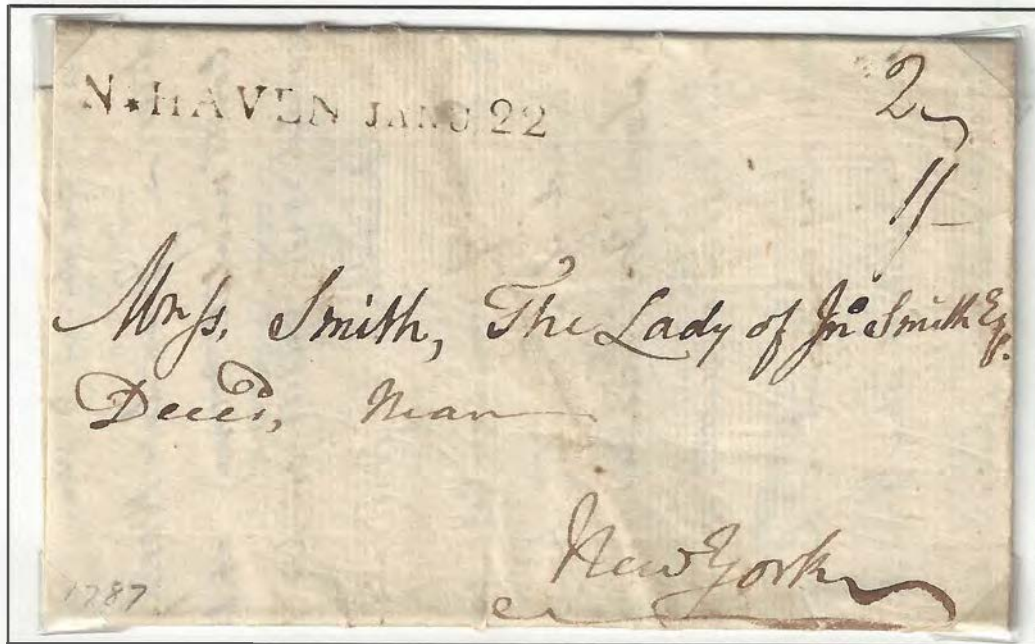 N*HAVEN JANU. 22
2
1/-
Mrss. Smith, The Lady of Jno. Smith Esq.
Deced, near
New York
1787